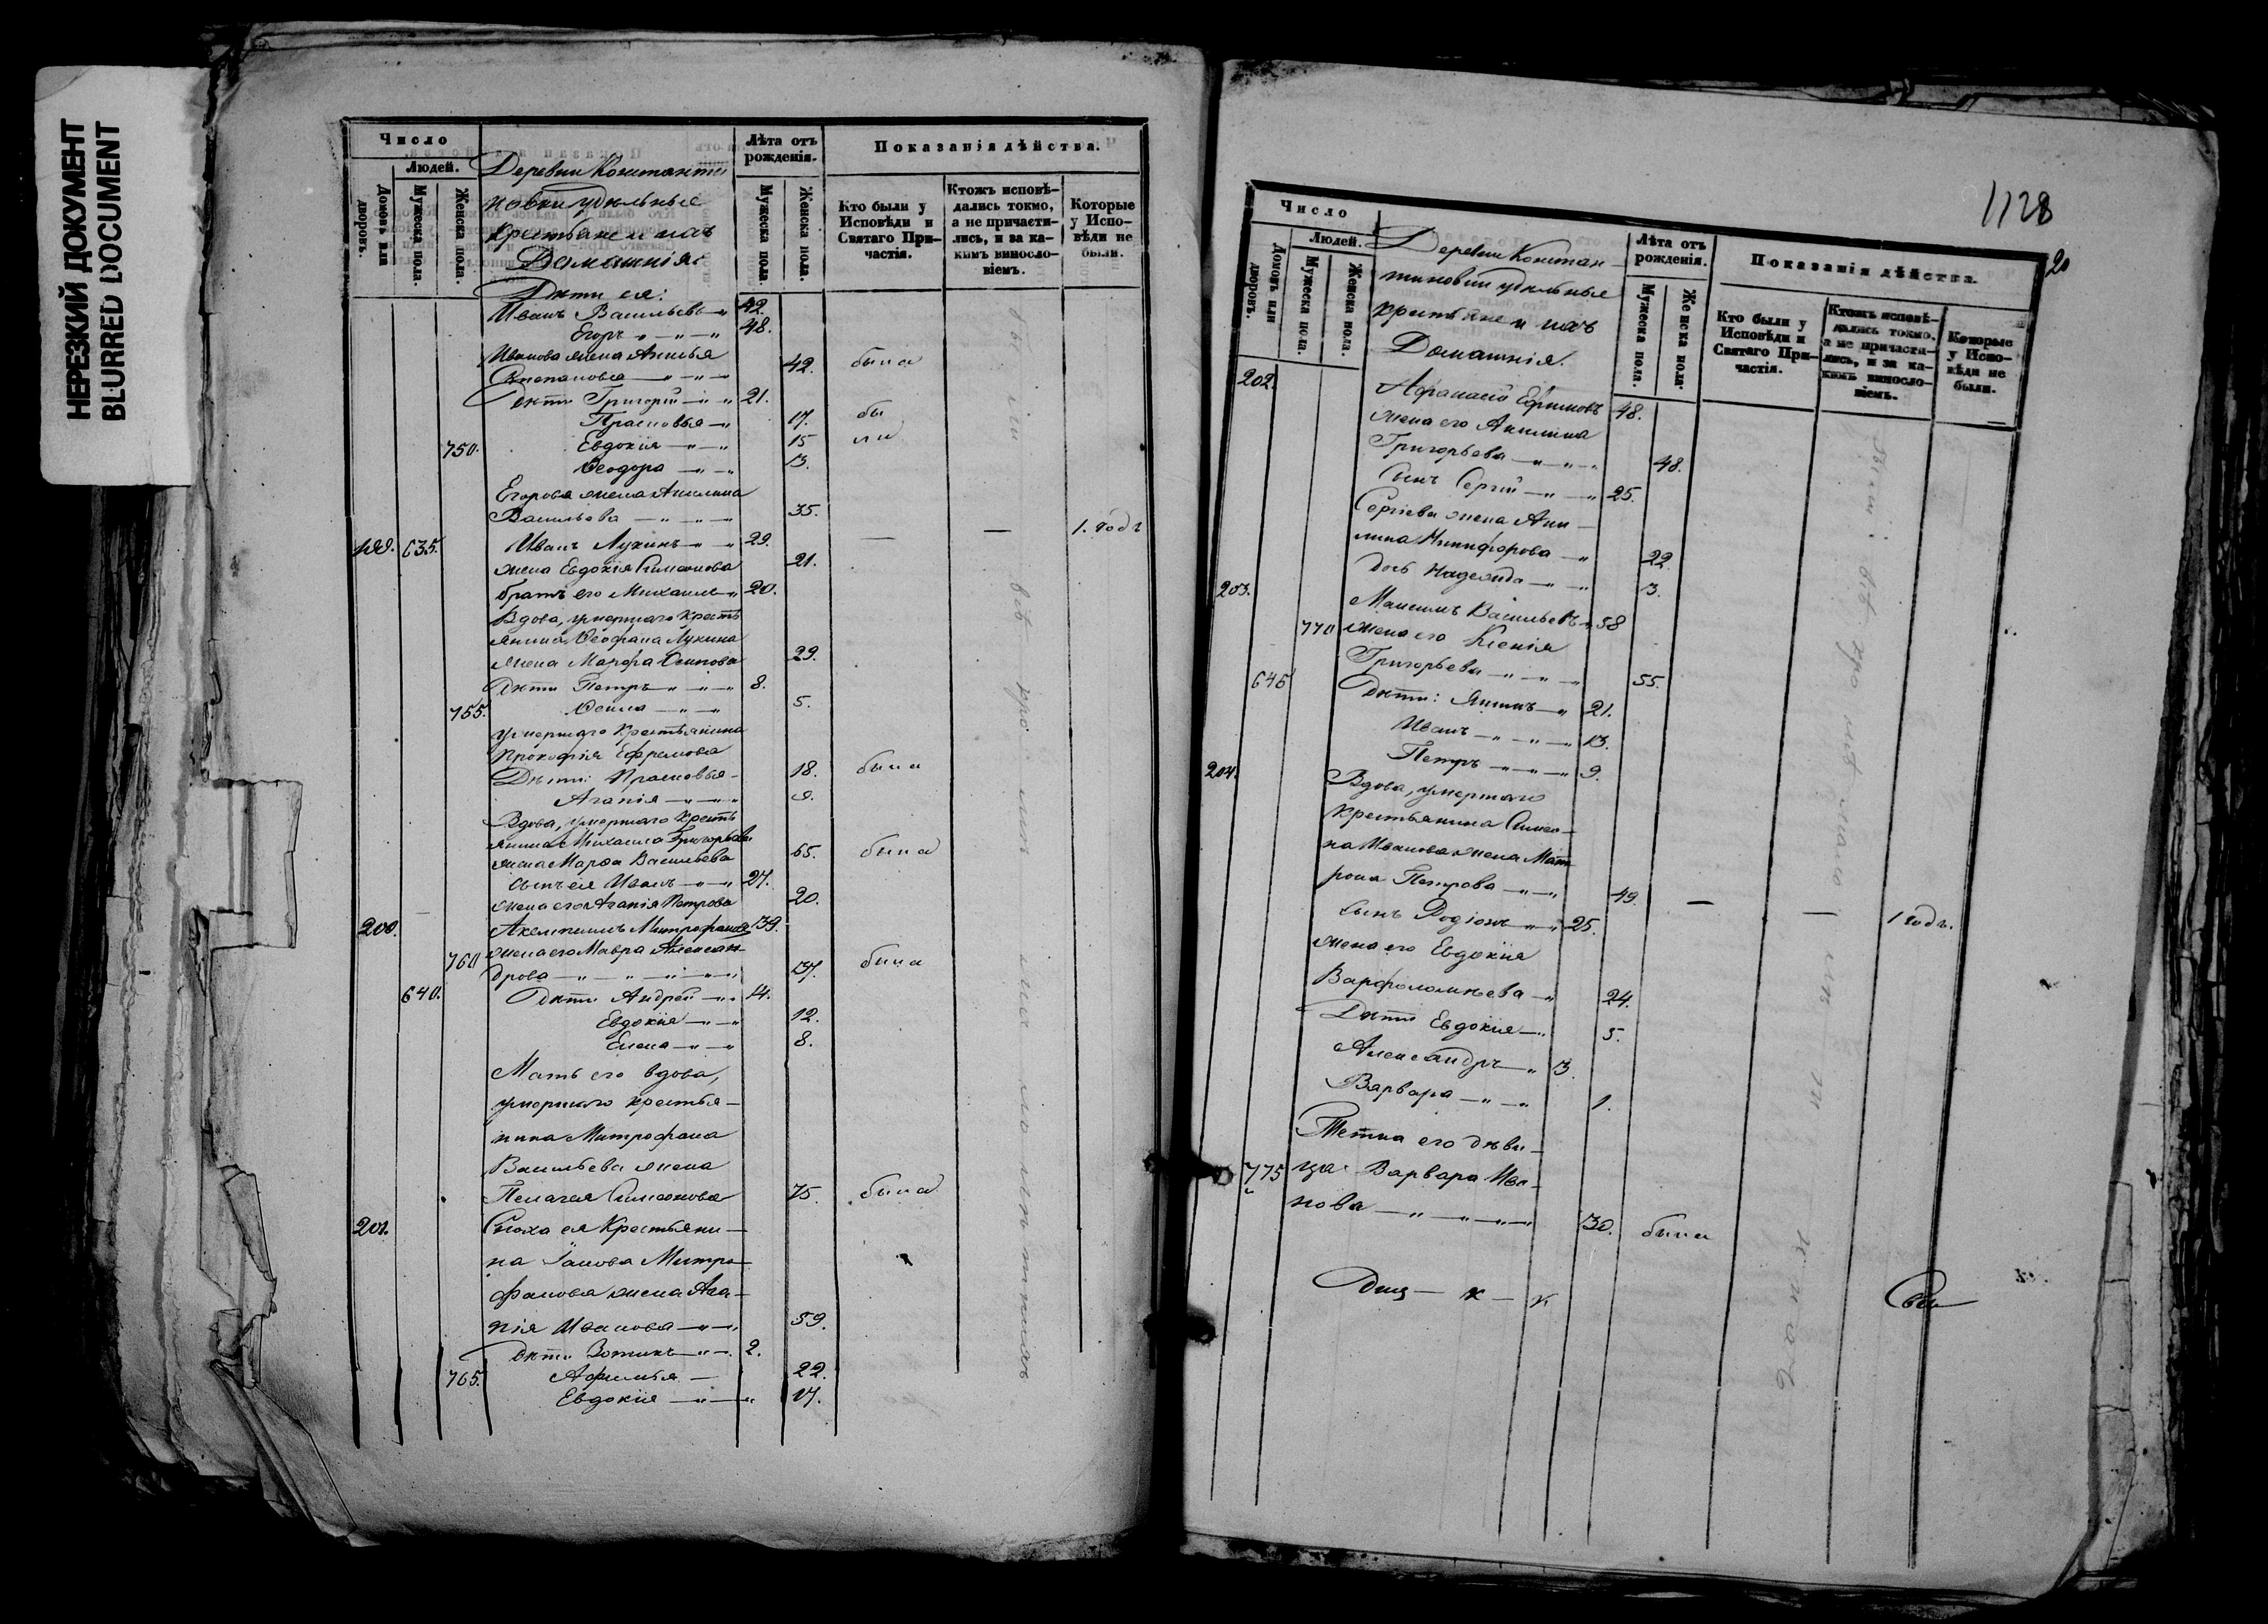 НЕРЕЗКИЙ ДОКУМЕНТ
BLURRED DOCUMENT
Число
Людей.
Домовъ или дворовъ.
Мужеска пола.
Женска пола.
Деревни Константи
новки удѣльные
крестьяне и ихъ
Домашнія
Лѣта отъ рожденія.
Мужеска пола
Женска пола.
Показанія дѣйства.
Кто были у Исповѣди и Святаго Причастія.
Ктожъ исповѣдались токмо, а не причастились, и за какимъ винословіемъ.
Которые у Исповѣди не были.
Дѣти ея:
Иванъ Васильевъ 42.
Егоръ 48.
Иванова жена Анисья
Степановна 42. была
Дѣти Григорій 21.
Прасковья 17. бы
750. Евдокія 15 ли
Ѳеодора 13.
Егорова жена Акилина
Васильева 35.
199. 635. Иванъ Лукинъ 29. — — 1. годъ
жена Евдокія Симеонова 21.
братъ его Михаилъ 20.
Вдова, умершаго кресть
янина Ѳеофана Лукина
жена Марфа Осипова 29.
Дѣти Петръ 8.
755. 5.
умершаго крестьянина
Прокофія Ефремова
Дѣти: Прасковья 18. была
Агапія 9.
Вдова, умершаго кресть
янина Михаила Григорьева
жена Марфа Васильева 65. была
сынъ ея Иванъ 27.
жена его Агапія Петрова 20.
200. Митрофановъ 39.
760 жена его Мавра Алексан
дрова 37. была
640. Дѣти Андрей 14.
Евдокія 12.
Елена 8.
Мать его вдова,
умершаго крестья–
нина Митрофана
Васильева жена
Пелагея Симеонова 75. была
201. Сноха ея крестьяни–
на Іакова Митро
фанова жена Ага–
пія Иванова 39.
Дѣти Зотикъ 2.
765. Афимья 22.
Евдокія 17.
1128
20
Число
Людей.
Домовъ или дворовъ.
Мужеска пола.
Женска пола.
Деревни Констан–
тиновки удѣльные
крестьяне и ихъ
Домашнія.
Лѣта отъ рожденія.
Мужеска пола.
Женска пола.
Показанія дѣйства.
Кто были у Исповѣди и Святаго Причастія.
Ктожъ исповѣдались токмо, а не причастились, и за какимъ винословіемъ.
Которые у Исповѣди не были.
202. Афанасій Ефимовъ 48.
жена его Акилина
Григорьева 48.
Сынъ Сергій 25.
Сергіева жена Аки–
лина Никифорова 22.
дочь Надежда 3.
203. Максимъ Васильевъ 58
770 жена его Ксенія
Григорьева 55.
645 Дѣти: 21.
Иванъ 13.
Петръ 9.
204. Вдова, умершаго
крестьянина Симео–
на Иванова жена Мат
рона Петрова 49. — — 1 годъ.
сынъ Родіонъ 25.
жена его Евдокія
Варфоломѣева 24.
Дѣти Евдокія 5.
Александръ 3.
Варвара 1.
Тетка его дѣви–
775 ца Варвара Ива–
нова 30. была